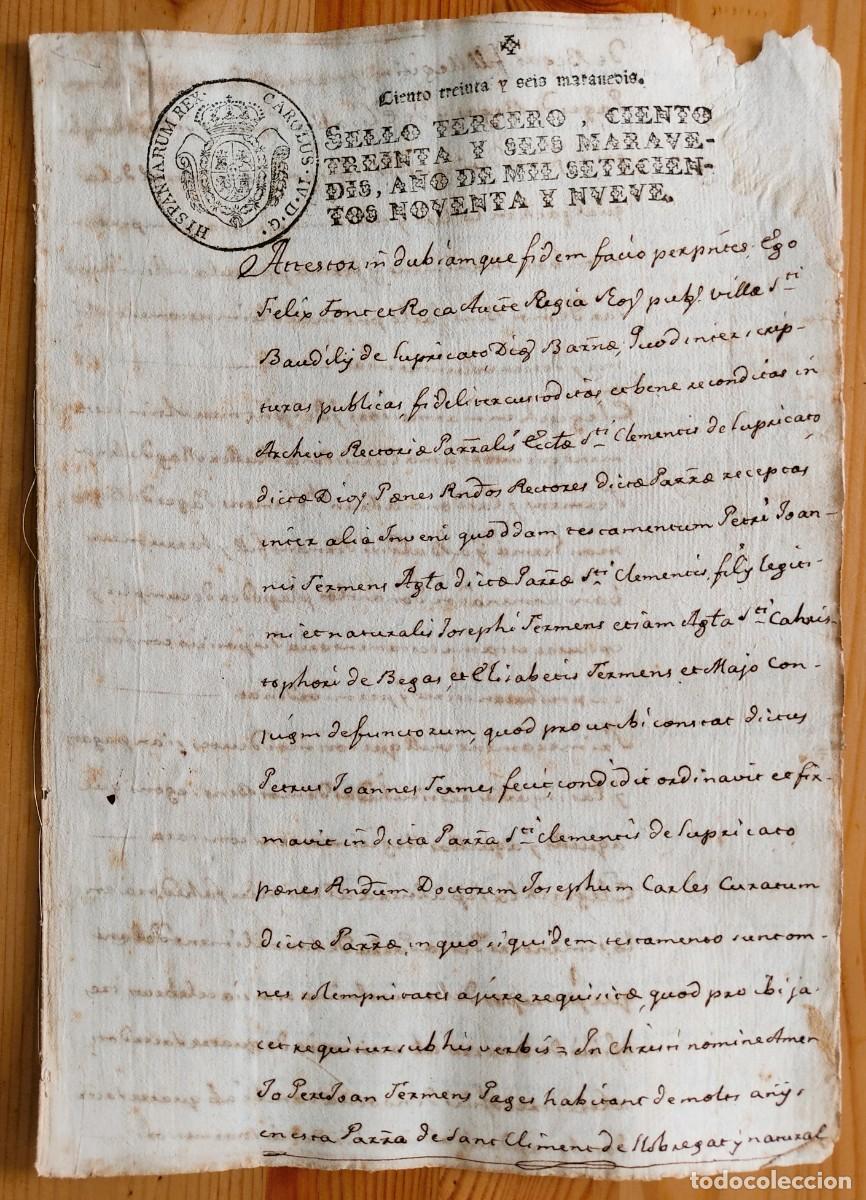 Ciento treinta y seis maravedis.
HISPANIARUM REX · CAROLUS · IV · D · G ·
SELLO TERCERO, CIENTO
TREINTA Y SEIS MARAVE-
DIS, AÑO DE MIL SETECIEN-
TOS NOVENTA Y NVEVE.
Attestor indubiamque fidem facio per pñtes, Ego
Felix Font et Roca Aucte Regia Noȷ pubȷ villæ Sti
Baudilij de Lupricato, Dioȷ Barñæ, Quod inter scrip-
turas publicas, fideliter custoditas et bene reconditas in
Archivo Rectoriæ Parr̃alis Ecctæ Sti Clementis de Lupricato,
dictæ Dioȷ Pænes Rndos Rectores dictæ Parr̃æ receptas
inter alia Inveni quoddam testamentum Petri Joan-
nis Termens Agta dictæ Parr̃æ Sti Clementis, filij legiti-
mi et naturalis Josephi Termens etiam Agta Sti Cahris-
tophori de Begas, et Elisabetis Termens, et Majo Con-
jugm defunctorum, quod prout ibi constat dictus
Petrus Joannes Termes fecit, condidit ordinavit et fir-
mavit in dicta Parr̃a Sti Clementis de Lupricato
pænes Rndum Doctorem Josephum Carles Curatum
dictæ Parr̃æ, in quo siquidem testamento sunt om-
nes solempnitates a jure requisitæ, quod pro ibi ja-
cet requitur sub his verbis = In Christi nomine Amen
Jo Pere Joan Térmens Pages habitant de molts anys
en esta Parr̃a de Sant Climent de Llobregat y natural
todocoleccion